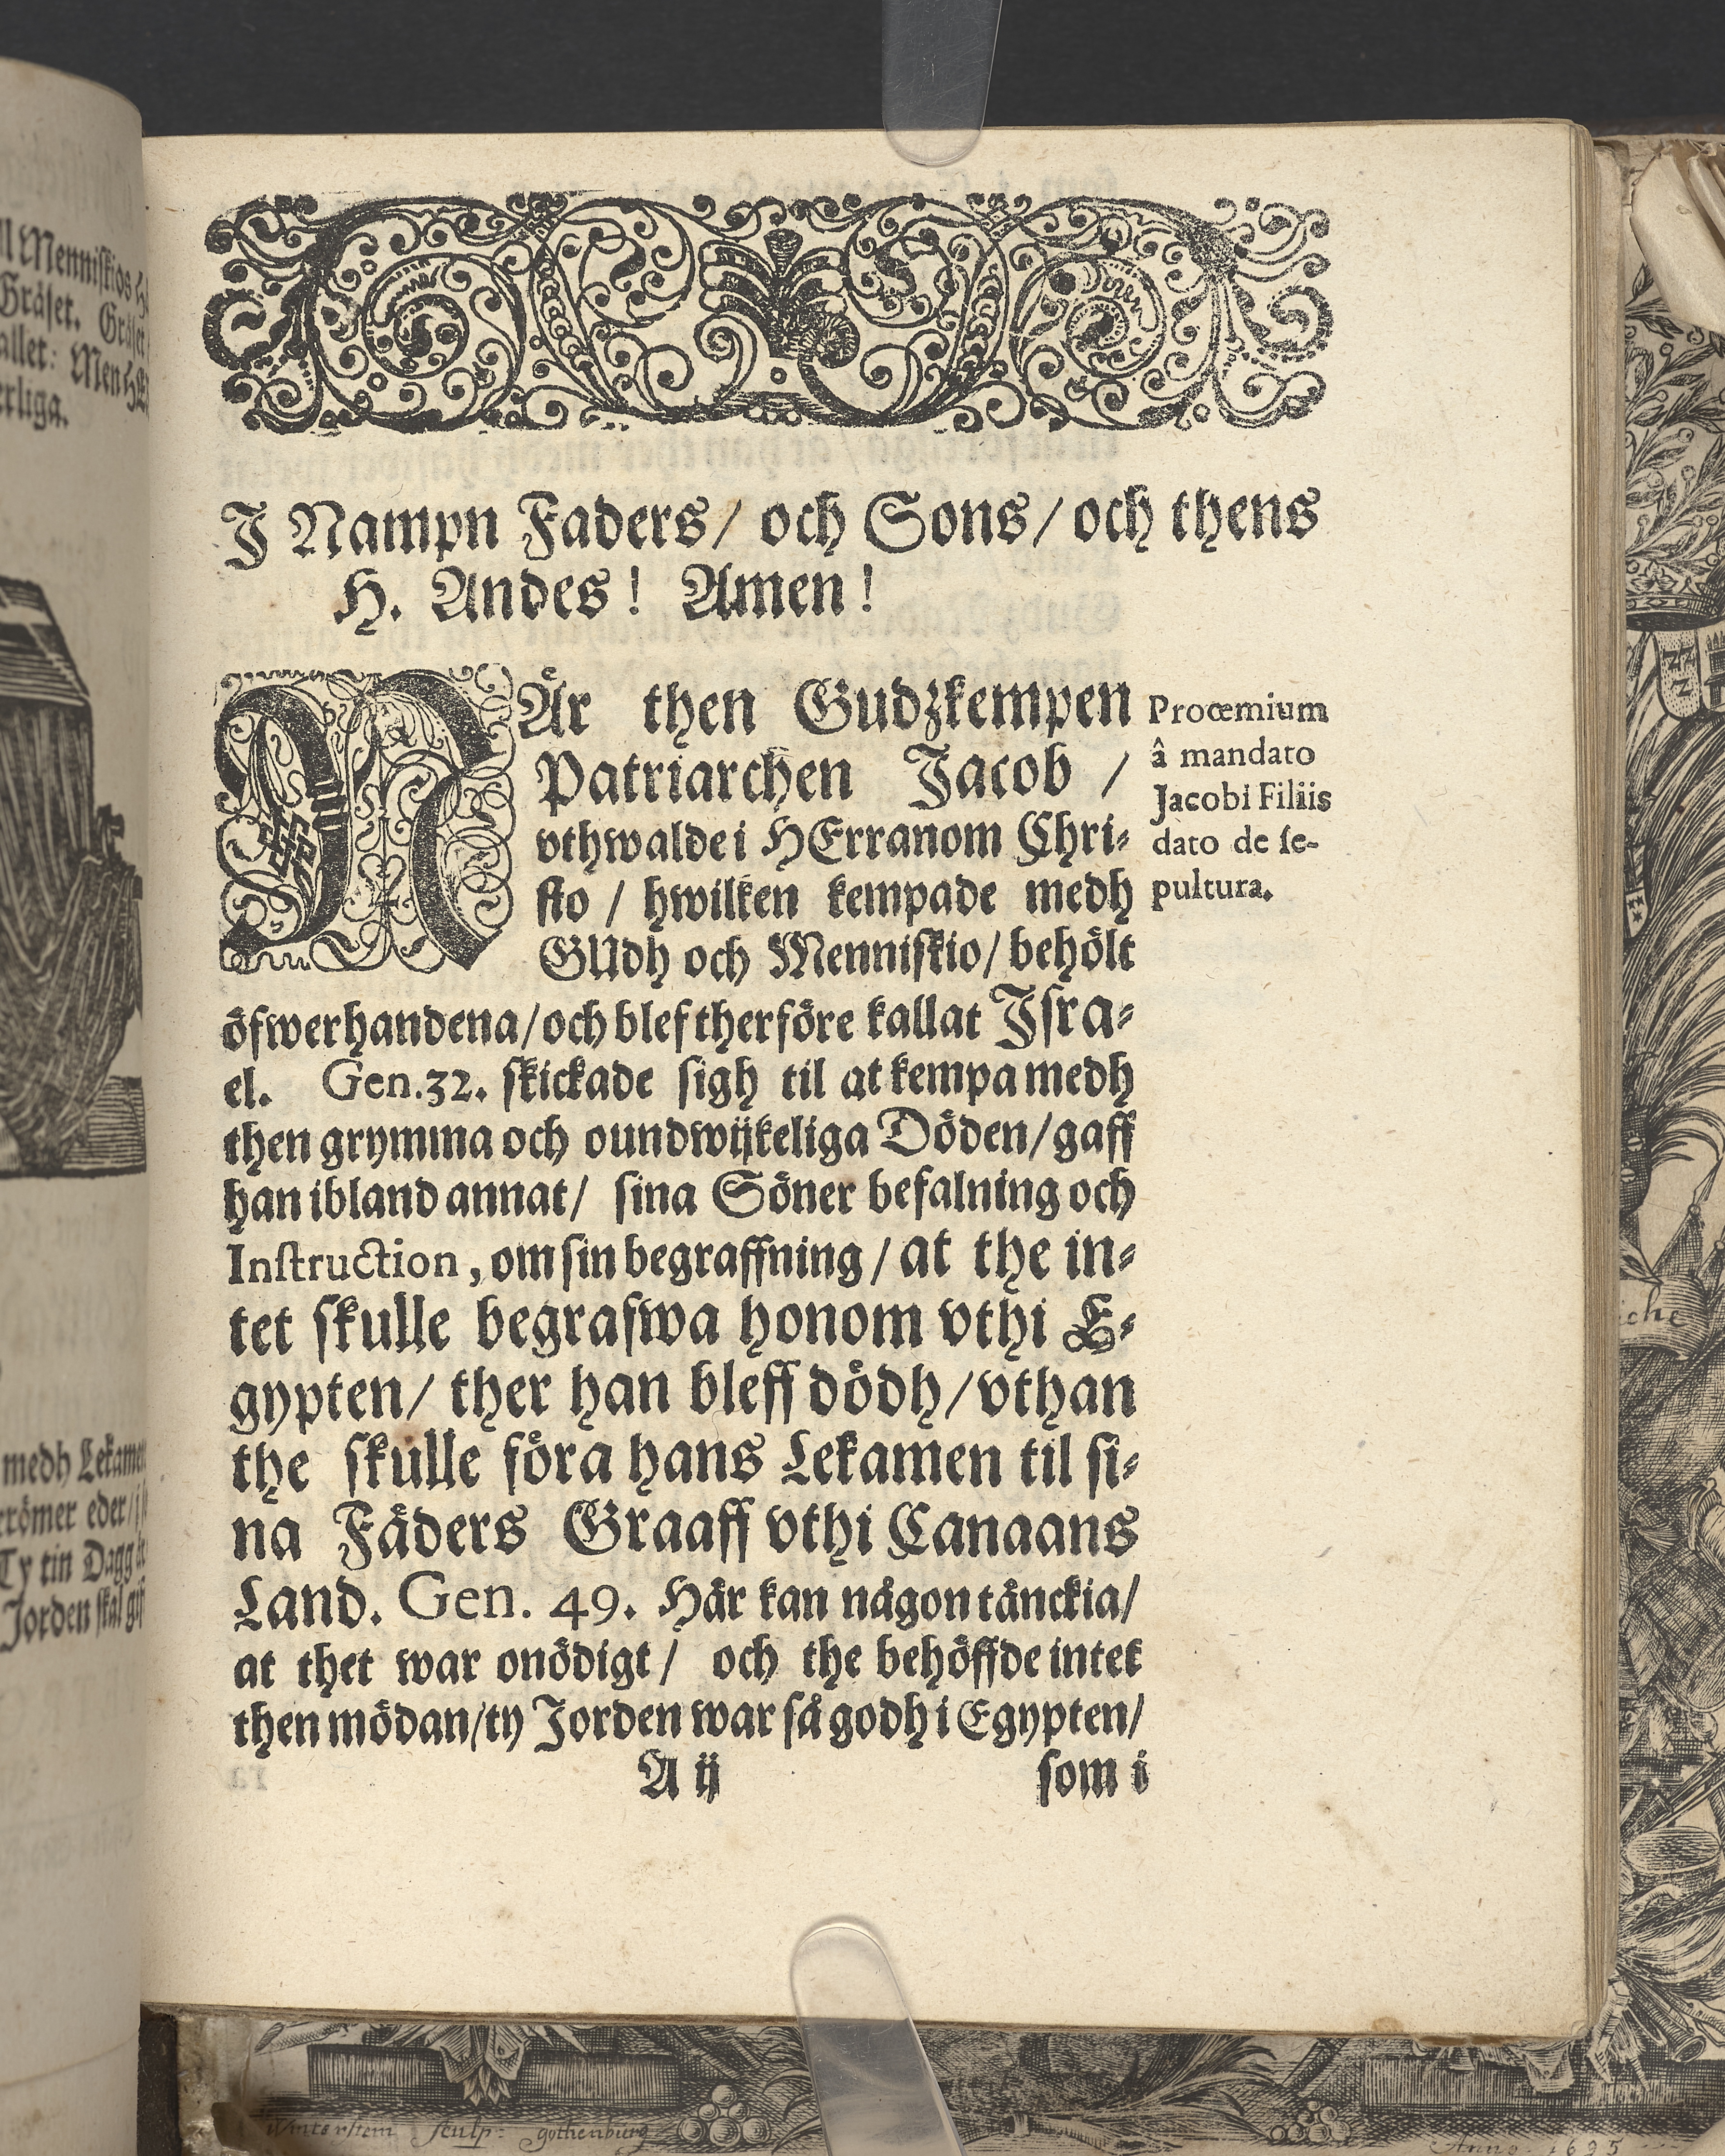 J Nampn Faders/ och Sons/ och thens
H. Andes! Amen!
NÄr then Gudzkempen
Patriarchen Jacob /
vthwalde i HErranom Chri-
sto / hwilken kempade medh
GUdh och Menniskio/ behölt
öfwerhandena/och blef therföre kallat Jsra-
el. Gen.32. skickade sigh til at kempa medh
then grymma och oundwijkeliga Döden/gaff
han ibland annat/ sina Söner befalning och
Instruction, om sin begraffning / at the in-
tet skulle begrafwa honom vthi E-
gypten/ ther han bleff dödh/vthan
the skulle föra hans Lekamen til si-
na Fäders Graaff vthi Canaans
Land. Gen. 49. Här kan någon tänckia/
at thet war onödigt/ och the behöffde intet
then mödan/ty Jorden war så godh i Egypten/
A ij som i
Proœmium
â mandato
Jacobi Filiis
dato de se-
pultura.
Menniskios
Gräset. Gräset
Men
medh Lekamen
eder/
Ty tin Dagg
Jorden skal
Winterhem sculp: gothenburg
Anno 1695